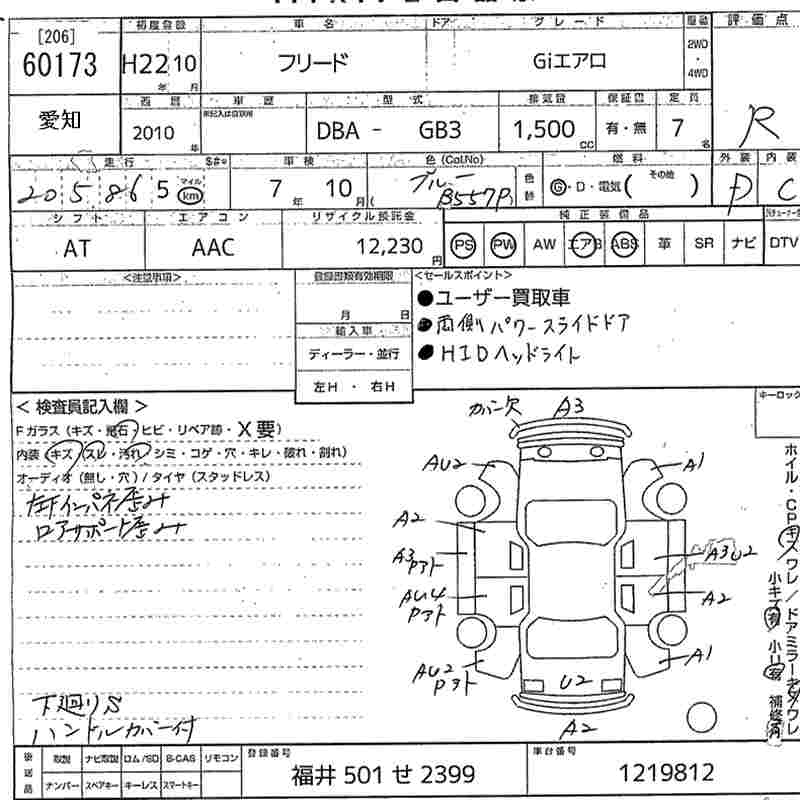 [206]
60173
初度登録
車名
ドア
グレード
駆動
評価点
H22 10
年 月
フリード
Giエアロ
2WD
・
4WD
R
愛知
西暦
車歴
型式
排気量
保証書
定員
2010 年
DBA - GB3
1,500 cc
有・無
7 名
走行
車検
色 (Col.No)
燃料
外装
内装
205865
マイル
km
7 年 10 月
ブルー
B557P
色替
G・D・電気( その他 )
D
C
シフト
エアコン
リサイクル預託金
純正装備品
AT
AAC
12,230 円
PS PW AW エアB ABS 革 SR ナビ DTV
<注意事項>
登録書類有効期限
<セールスポイント>
月 日
●ユーザー買取車
●両側パワースライドドア
●HIDヘッドライト
輸入車
ディーラー・並行
左H ・ 右H
< 検査員記入欄 >
キーロック
Fガラス (キズ・飛石・ヒビ・リペア跡・X要)
内装 (キズ・スレ・汚れ・シミ・コゲ・穴・キレ・破れ・割れ)
オーディオ (無し・穴) / タイヤ (スタッドレス)
左インパネ歪み
ロアサポート歪み
カバー欠
A3
AU2
A1
A2
A3
アト
A3U2
AU4
アト
A2
AU2
アト
A1
U2
A2
ホイル・CPキズワレ / ドアミラーキズワレ
小キズ有 小U有 補修有
下廻りS
ハンドルカバー付
後送品
取説 ナビ取説 ロム/SD B-CAS リモコン
ナンバー スペアキー キーレス スマートキー
登録番号
福井 501 せ 2399
車台番号
1219812